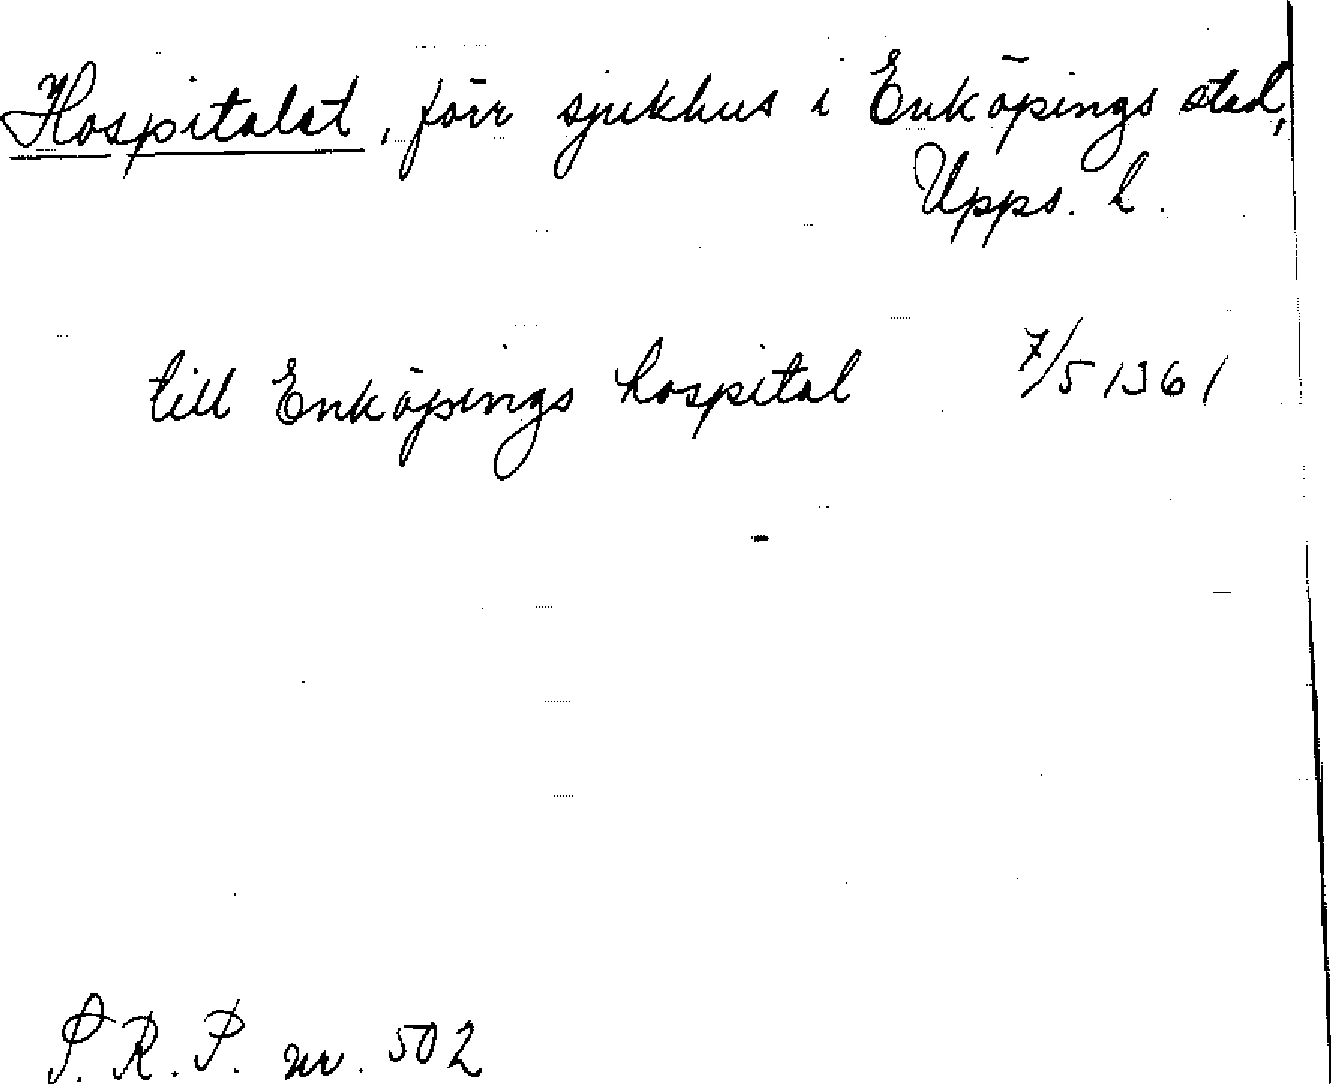 Hospitalet, förr sjukhus i Enköpings stad,
Upps. l.
till Enköpings hospital 7/5 1361
S.R.P. nr. 502